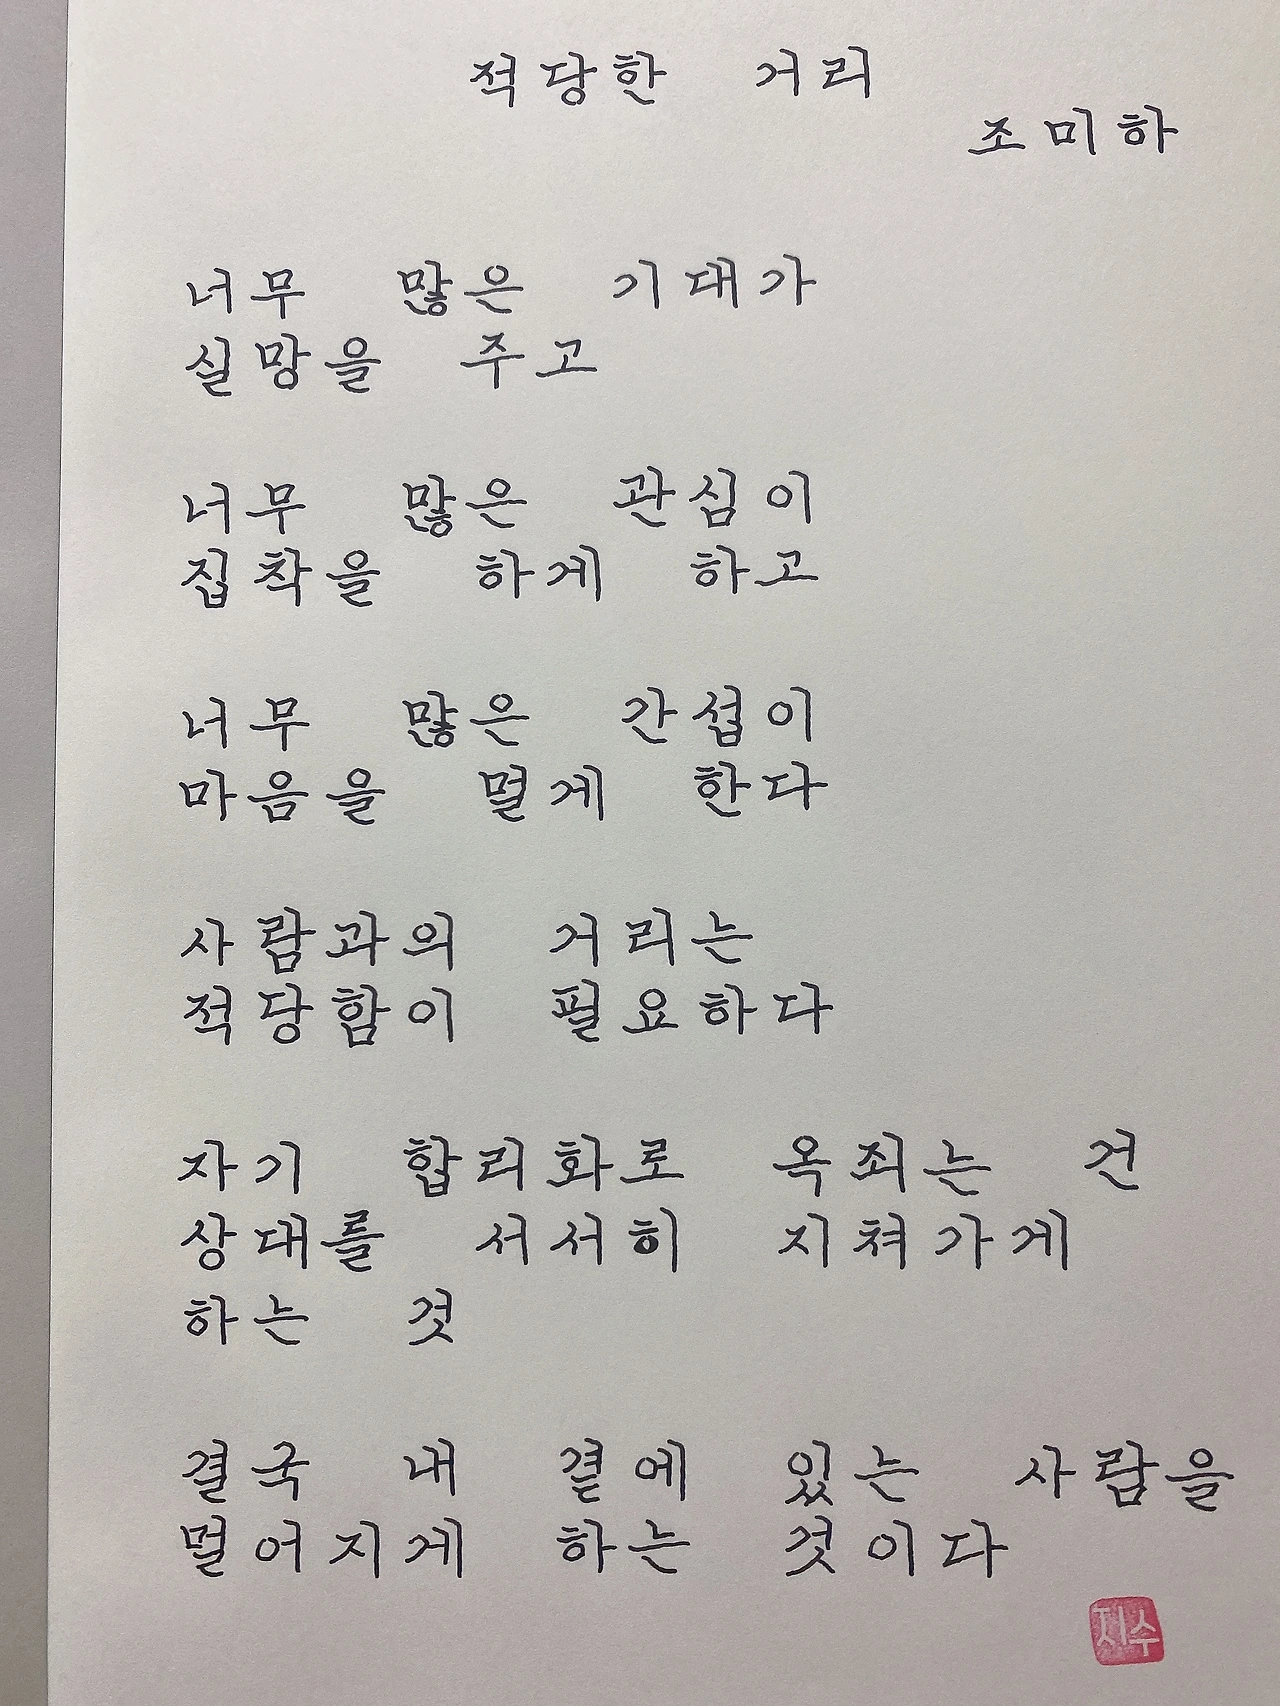 적당한 거리
조미하
너무 많은 기대가
실망을 주고
너무 많은 관심이
집착을 하게 하고
너무 많은 간섭이
마음을 멀게 한다
사람과의 거리는
적당함이 필요하다
자기 합리화로 옥죄는 건
상대를 서서히 지쳐가게
하는 것
결국 내 곁에 있는 사람을
멀어지게 하는 것이다
지수